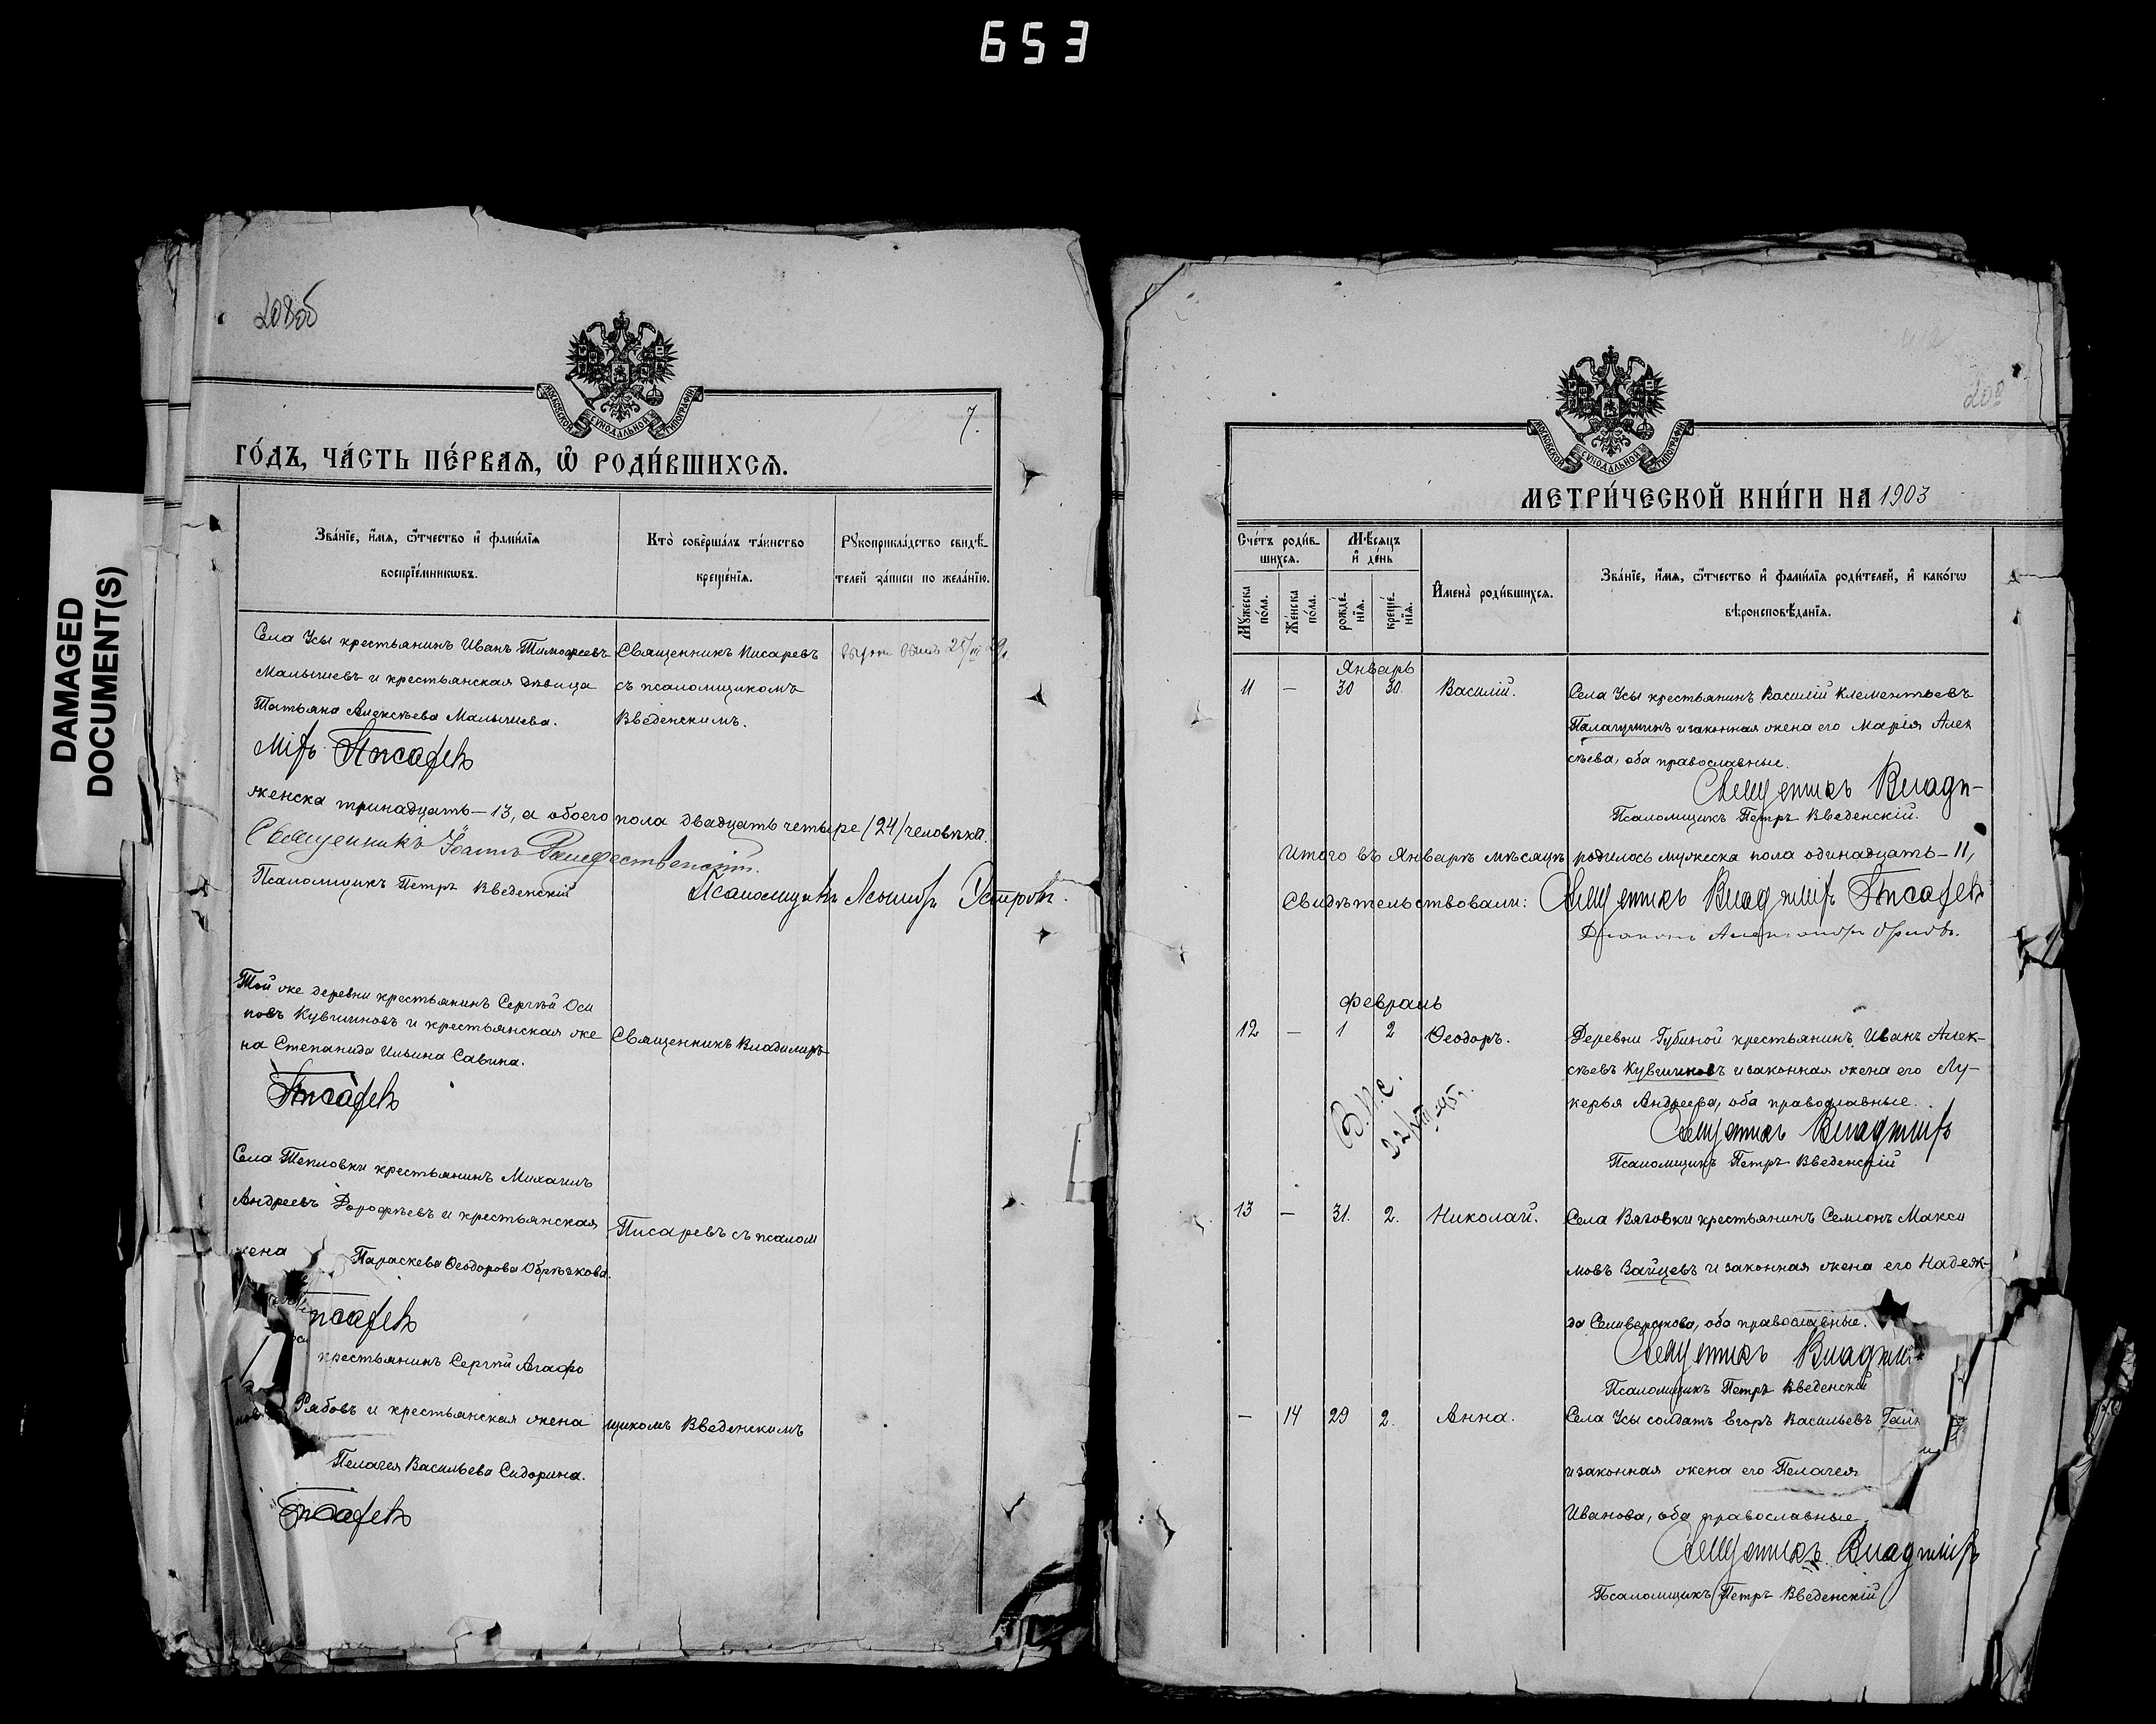 653
DAMAGED
DOCUMENT(S)
208об
МОСКОВСКОЙ СѴНОДАЛЬНОЙ ТИПОГРАФІИ
7.
ГО́ДЪ, ЧА́СТЬ ПЕ́РВАѦ, Ѡ҆ РОДИ́ВШИХСѦ.
Зва́нїе, и҆́мѧ, ѻ҆́тчество и҆ фамѝлїѧ
воспрїе́мникѡвъ.
Кто̀ соверша́лъ та́инство
креще́нїѧ.
Рꙋкоприкла́дство свидѣ́-
телей за́писи по жела́нїю.
Села Усы крестьянинъ Иванъ Тимофеевъ
Малышевъ и крестьянская дѣвица
Татьяна Алексѣева Малышева.
Священникъ Писаревъ
съ псаломщикомъ
Введенскимъ.
міръ Писаревъ
женска тринадцать – 13, а обоего пола двадцать четыре /24/ человѣка.
Священникъ Іоаннъ Рождественскій.
Псаломщикъ Петръ Введенскій
Псаломщикъ
Той же деревни крестьянинъ Сергѣй Оси
повъ Кувшиновъ и крестьянская же
на Степанида Ильина Савина.
Священникъ Владиміръ
Писаревъ
Села Тепловки крестьянинъ Михаилъ
Андреевъ Дорофѣевъ и крестьянская
жена Параскева Ѳеодорова Обрѣзкова.
Писаревъ съ псалом
Писаревъ
крестьянинъ Сергѣй Агафо
новъ Рябовъ и крестьянская жена
Пелагея Васильева Сидорина.
щикомъ Введенскимъ
Писаревъ
209
МОСКОВСКОЙ СѴНОДАЛЬНОЙ ТИПОГРАФІИ
МЕТРИ́ЧЕСКОЙ КНИ́ГИ НА 1903
Сче́тъ роди́в-
шихсѧ.
Мꙋ́жеска по́ла.
Же́нска по́ла.
Мѣ́сѧцъ
и҆ де́нь
рожде́-
нїѧ.
креще́-
нїѧ.
И҆мена̀ роди́вшихсѧ.
Зва́нїе, и҆́мѧ, ѻ҆́тчество и҆ фамѝлїѧ роди́телей, и҆ како́гѡ
вѣроисповѣ́данїѧ.
Январь
11 – 30 30. Василій. Села Усы крестьянинъ Василій Клементьевъ
Палагушинъ и законная жена его Марія Алек
сѣева, оба православные.
Священникъ Влади-
Псаломщикъ Петръ Введенскій.
Итого въ Январѣ мѣсяцѣ родилось мужеска пола одинадцать – 11,
Свидѣтельствовали: Священникъ Владиміръ Писаревъ
Діаконъ Александръ Орловъ.
Февраль
12 – 1 2 Ѳеодоръ. Деревни Губиной крестьянинъ Иванъ Алек-
сѣевъ Кувшиновъ и законная жена его Лу-
керья Андреева, оба православные.
Священникъ Владиміръ
Псаломщикъ Петръ Введенскій
13 – 31. 2. Николай. Села Вязовки крестьянинъ Семіонъ Макси
мовъ Зайцевъ и законная жена его Надеж-
да Селиверстова, оба православные.
Священникъ Владимі
Псаломщикъ Петръ Введенскій
– 14 29 2. Анна. Села Усы солдатъ Егоръ Васильевъ
и законная жена его Пелагея
Иванова, оба православные.
Священникъ Владиміръ
Псаломщикъ Петръ Введенскій